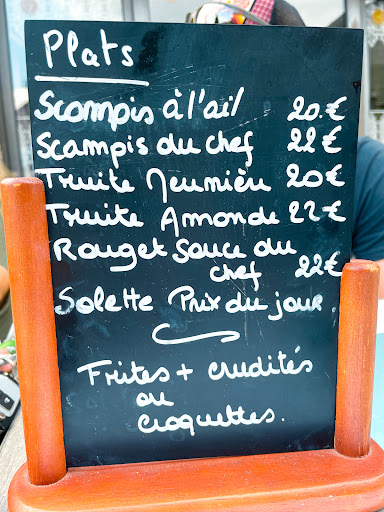 Plats
Scampis à l'ail 20.€
Scampis du chef 22€
Truite Meunièu 20€
Truite Amande 22€
Rouget Sauce du
chef 22€
Solette Prix du jour.
Frites + crudités
ou
croquettes.